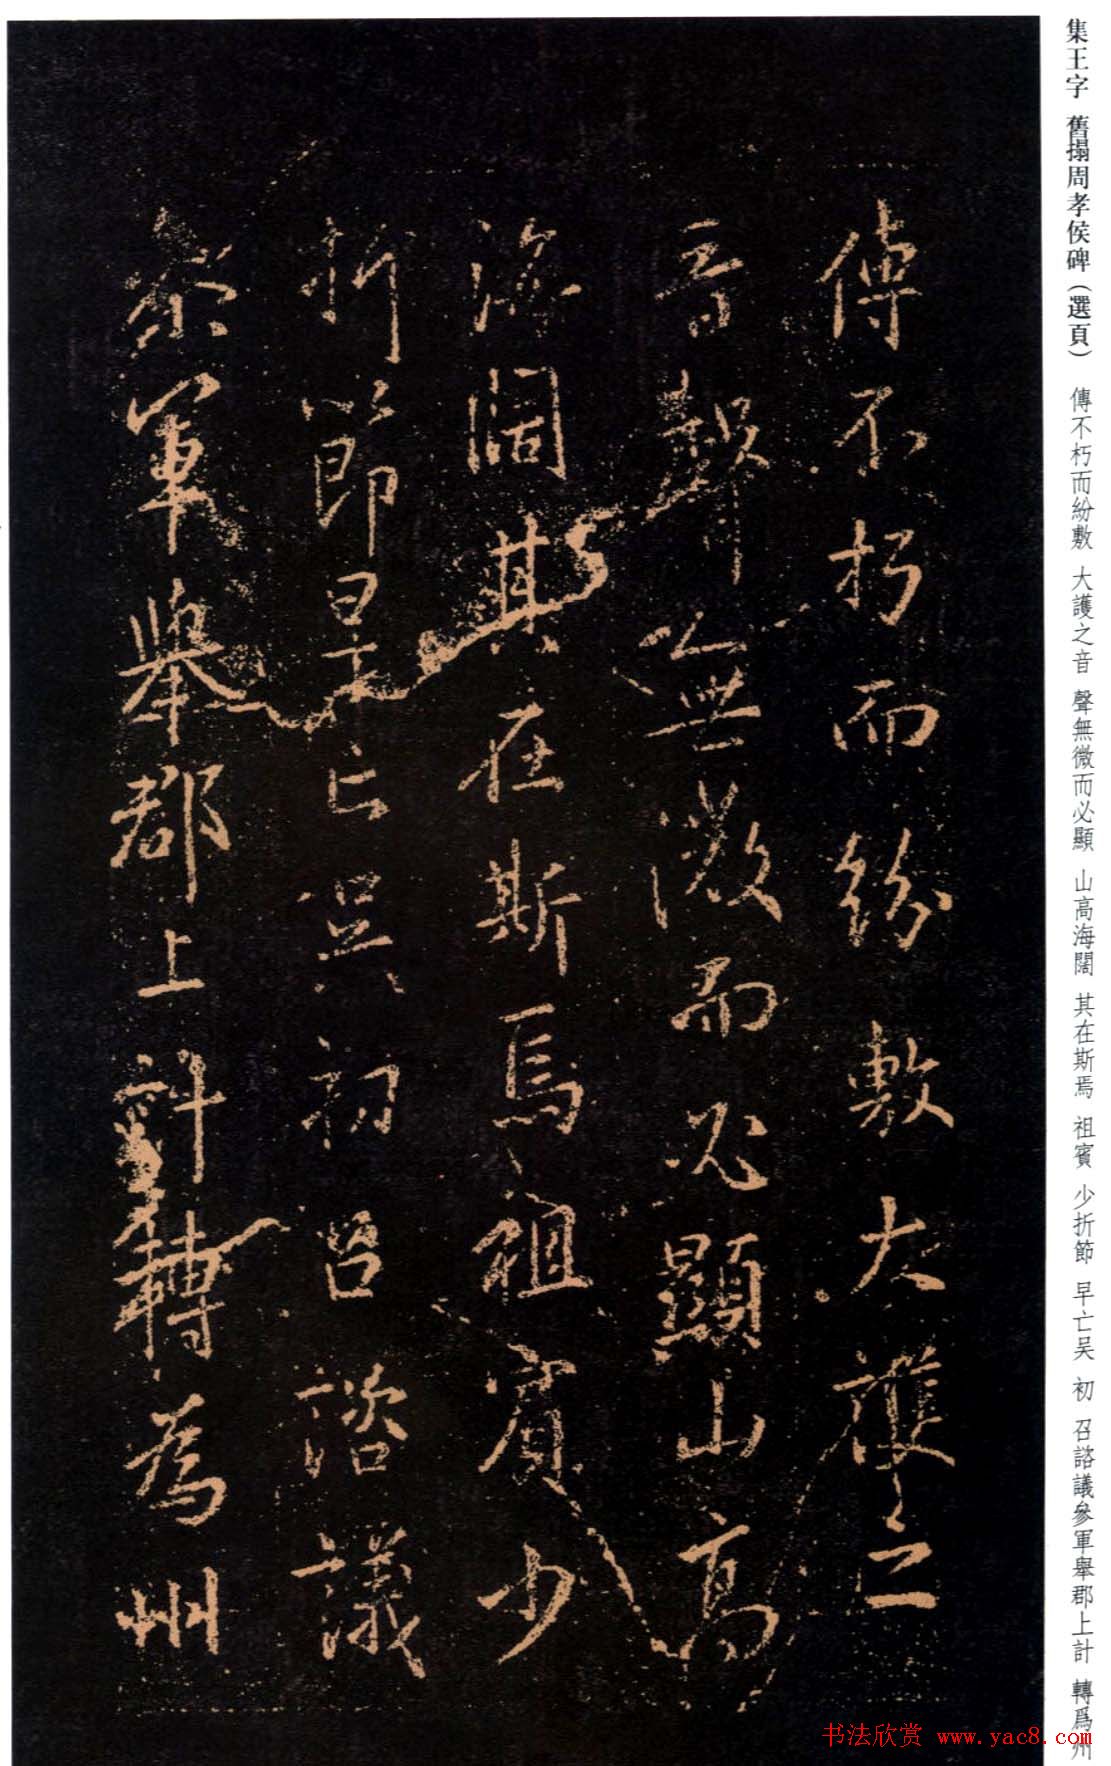 集王字 舊搨周孝侯碑（選頁） 傳不朽而紛敷 大護之音 聲無微而必顯 山高海闊 其在斯焉 祖賓 少折節 早亡吴 初 召諮議參軍舉郡上計 轉爲州
傳不朽而紛敷大護之
音聲無微而必顯山高
海闊其在斯焉祖賓少
折節早亡吳初召諮議
參軍舉郡上計轉為州
书法欣赏 www.yac8.com